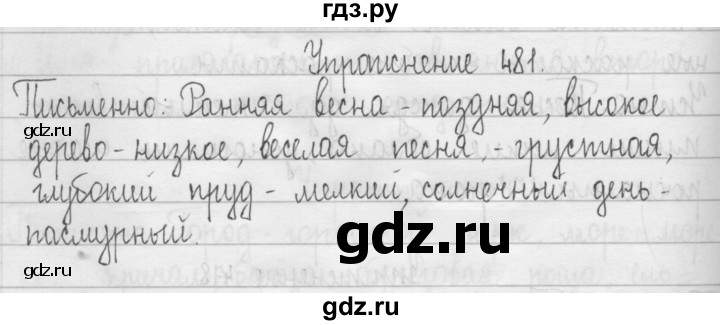 гдз.ру
Упражнение 481.
Письменно: Ранняя весна - поздняя, высокое
gdz.ru
дерево - низкое, веселая песня, - грустная,
глубокий пруд - мелкий, солнечный день -
пасмурный.
gdz.ru
gdz.ru
gdz.ru